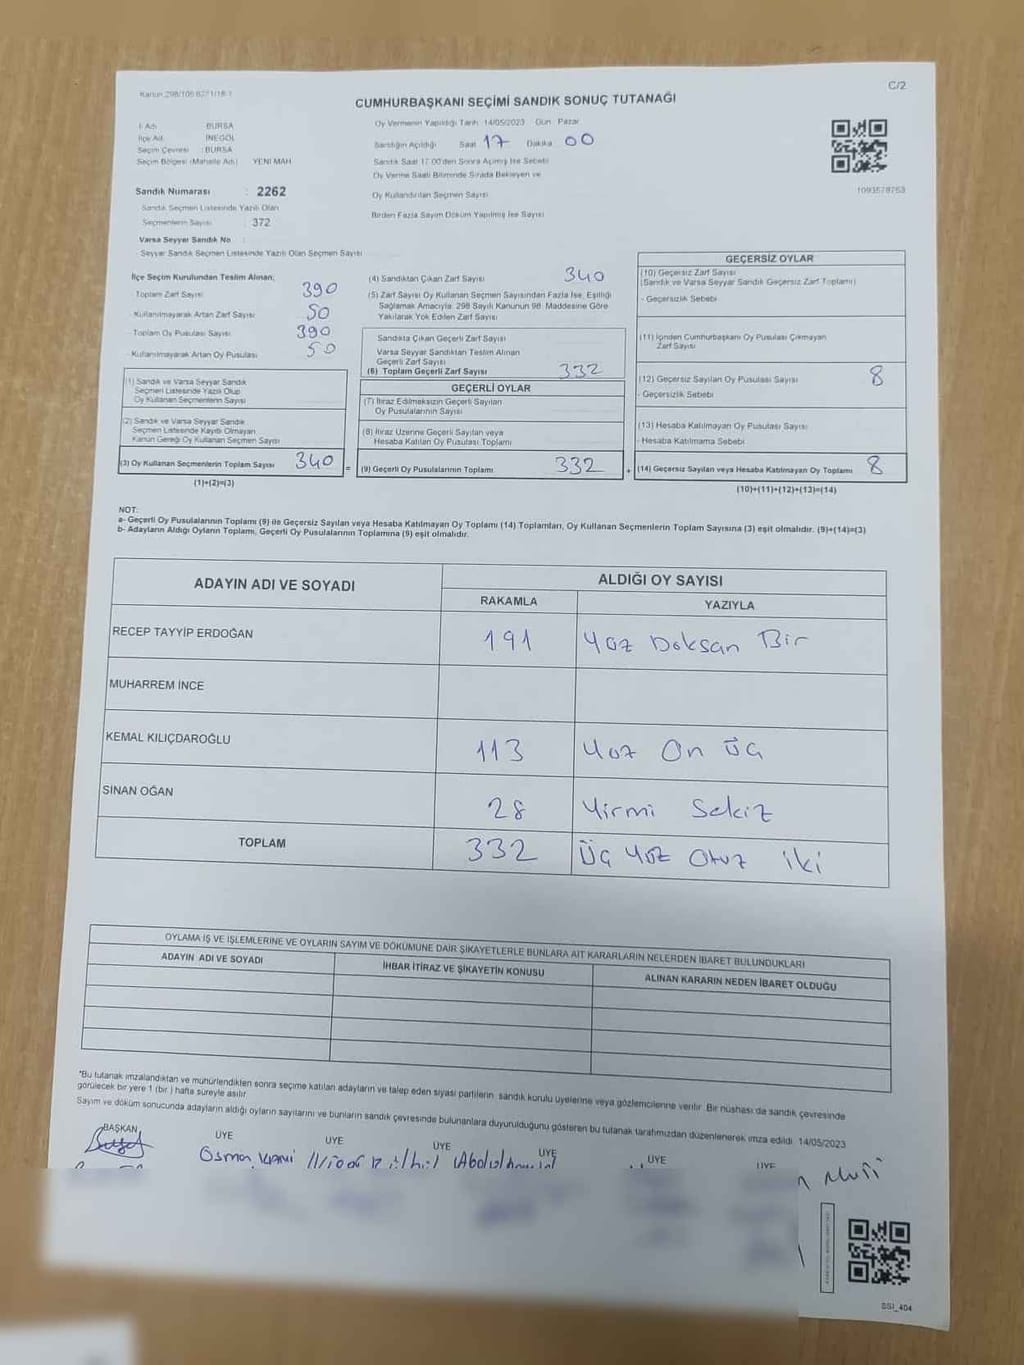 Kanun 298/105 6271/18-1
C/2
CUMHURBAŞKANI SEÇİMİ SANDIK SONUÇ TUTANAĞI
İl Adı : BURSA
İlçe Adı : İNEGÖL
Seçim Çevresi : BURSA
Seçim Bölgesi (Mahalle Adı) : YENİ MAH
Sandık Numarası : 2262
Sandık Seçmen Listesinde Yazılı Olan
Seçmenlerin Sayısı : 372
Varsa Seyyar Sandık No
Seyyar Sandık Seçmen Listesinde Yazılı Olan Seçmen Sayısı
Oy Vermenin Yapıldığı Tarih 14/05/2023 Gün Pazar
Sandığın Açıldığı Saat 17 Dakika 00
Sandık Saat 17.00'den Sonra Açılmış İse Sebebi
Oy Verme Saati Bitiminde Sırada Bekleyen ve
Oy Kullandırılan Seçmen Sayısı
Birden Fazla Sayım Döküm Yapılmış İse Sayısı
1093578753
İlçe Seçim Kurulundan Teslim Alınan;
Toplam Zarf Sayısı 390
- Kullanılmayarak Artan Zarf Sayısı 50
- Toplam Oy Pusulası Sayısı 390
- Kullanılmayarak Artan Oy Pusulası 50
(1) Sandık ve Varsa Seyyar Sandık
Seçmen Listesinde Yazılı Olup
Oy Kullanan Seçmenlerin Sayısı
(2) Sandık ve Varsa Seyyar Sandık
Seçmen Listesinde Kayıtlı Olmayan
Kanun Gereği Oy Kullanan Seçmen Sayısı
(3) Oy Kullanan Seçmenlerin Toplam Sayısı 340 =
(1)+(2)=(3)
(4) Sandıktan Çıkan Zarf Sayısı 340
(5) Zarf Sayısı Oy Kullanan Seçmen Sayısından Fazla İse, Eşitliği
Sağlamak Amacıyla; 298 Sayılı Kanunun 98. Maddesine Göre
Yakılarak Yok Edilen Zarf Sayısı
Sandıkta Çıkan Geçerli Zarf Sayısı
Varsa Seyyar Sandıktan Teslim Alınan
Geçerli Zarf Sayısı
(6) Toplam Geçerli Zarf Sayısı 332
GEÇERLİ OYLAR
(7) İtiraz Edilmeksizin Geçerli Sayılan
Oy Pusulalarının Sayısı
(8) İtiraz Üzerine Geçerli Sayılan veya
Hesaba Katılan Oy Pusulası Toplamı
(9) Geçerli Oy Pusulalarının Toplamı 332 +
GEÇERSİZ OYLAR
(10) Geçersiz Zarf Sayısı
(Sandık ve Varsa Seyyar Sandık Geçersiz Zarf Toplamı)
- Geçersizlik Sebebi
(11) İçinden Cumhurbaşkanı Oy Pusulası Çıkmayan
Zarf Sayısı
(12) Geçersiz Sayılan Oy Pusulası Sayısı 8
- Geçersizlik Sebebi
(13) Hesaba Katılmayan Oy Pusulası Sayısı
- Hesaba Katılmama Sebebi
(14) Geçersiz Sayılan veya Hesaba Katılmayan Oy Toplamı 8
(10)+(11)+(12)+(13)=(14)
NOT:
a- Geçerli Oy Pusulalarının Toplamı (9) ile Geçersiz Sayılan veya Hesaba Katılmayan Oy Toplamı (14) Toplamları, Oy Kullanan Seçmenlerin Toplam Sayısına (3) eşit olmalıdır. (9)+(14)=(3)
b- Adayların Aldığı Oyların Toplamı, Geçerli Oy Pusulalarının Toplamına (9) eşit olmalıdır.
ADAYIN ADI VE SOYADI ALDIĞI OY SAYISI
RAKAMLA YAZIYLA
RECEP TAYYİP ERDOĞAN 191 Yüz Doksan Bir
MUHARREM İNCE
KEMAL KILIÇDAROĞLU 113 Yüz On Üç
SİNAN OĞAN 28 Yirmi Sekiz
TOPLAM 332 Üç Yüz Otuz iki
OYLAMA İŞ VE İŞLEMLERİNE VE OYLARIN SAYIM VE DÖKÜMÜNE DAİR ŞİKAYETLERLE BUNLARA AİT KARARLARIN NELERDEN İBARET BULUNDUKLARI
ADAYIN ADI VE SOYADI İHBAR İTİRAZ VE ŞİKAYETİN KONUSU ALINAN KARARIN NEDEN İBARET OLDUĞU
*Bu tutanak imzalandıktan ve mühürlendikten sonra seçime katılan adayların ve talep eden siyasi partilerin sandık kurulu üyelerine veya gözlemcilerine verilir. Bir nüshası da sandık çevresinde
görülecek bir yere 1 (bir) hafta süreyle asılır.
Sayım ve döküm sonucunda adayların aldığı oyların sayılarını ve bunların sandık çevresinde bulunanlara duyurulduğunu gösteren bu tutanak tarafımızdan düzenlenerek imza edildi. 14/05/2023
BAŞKAN ÜYE ÜYE ÜYE ÜYE ÜYE ÜYE
Osman
SSI_404